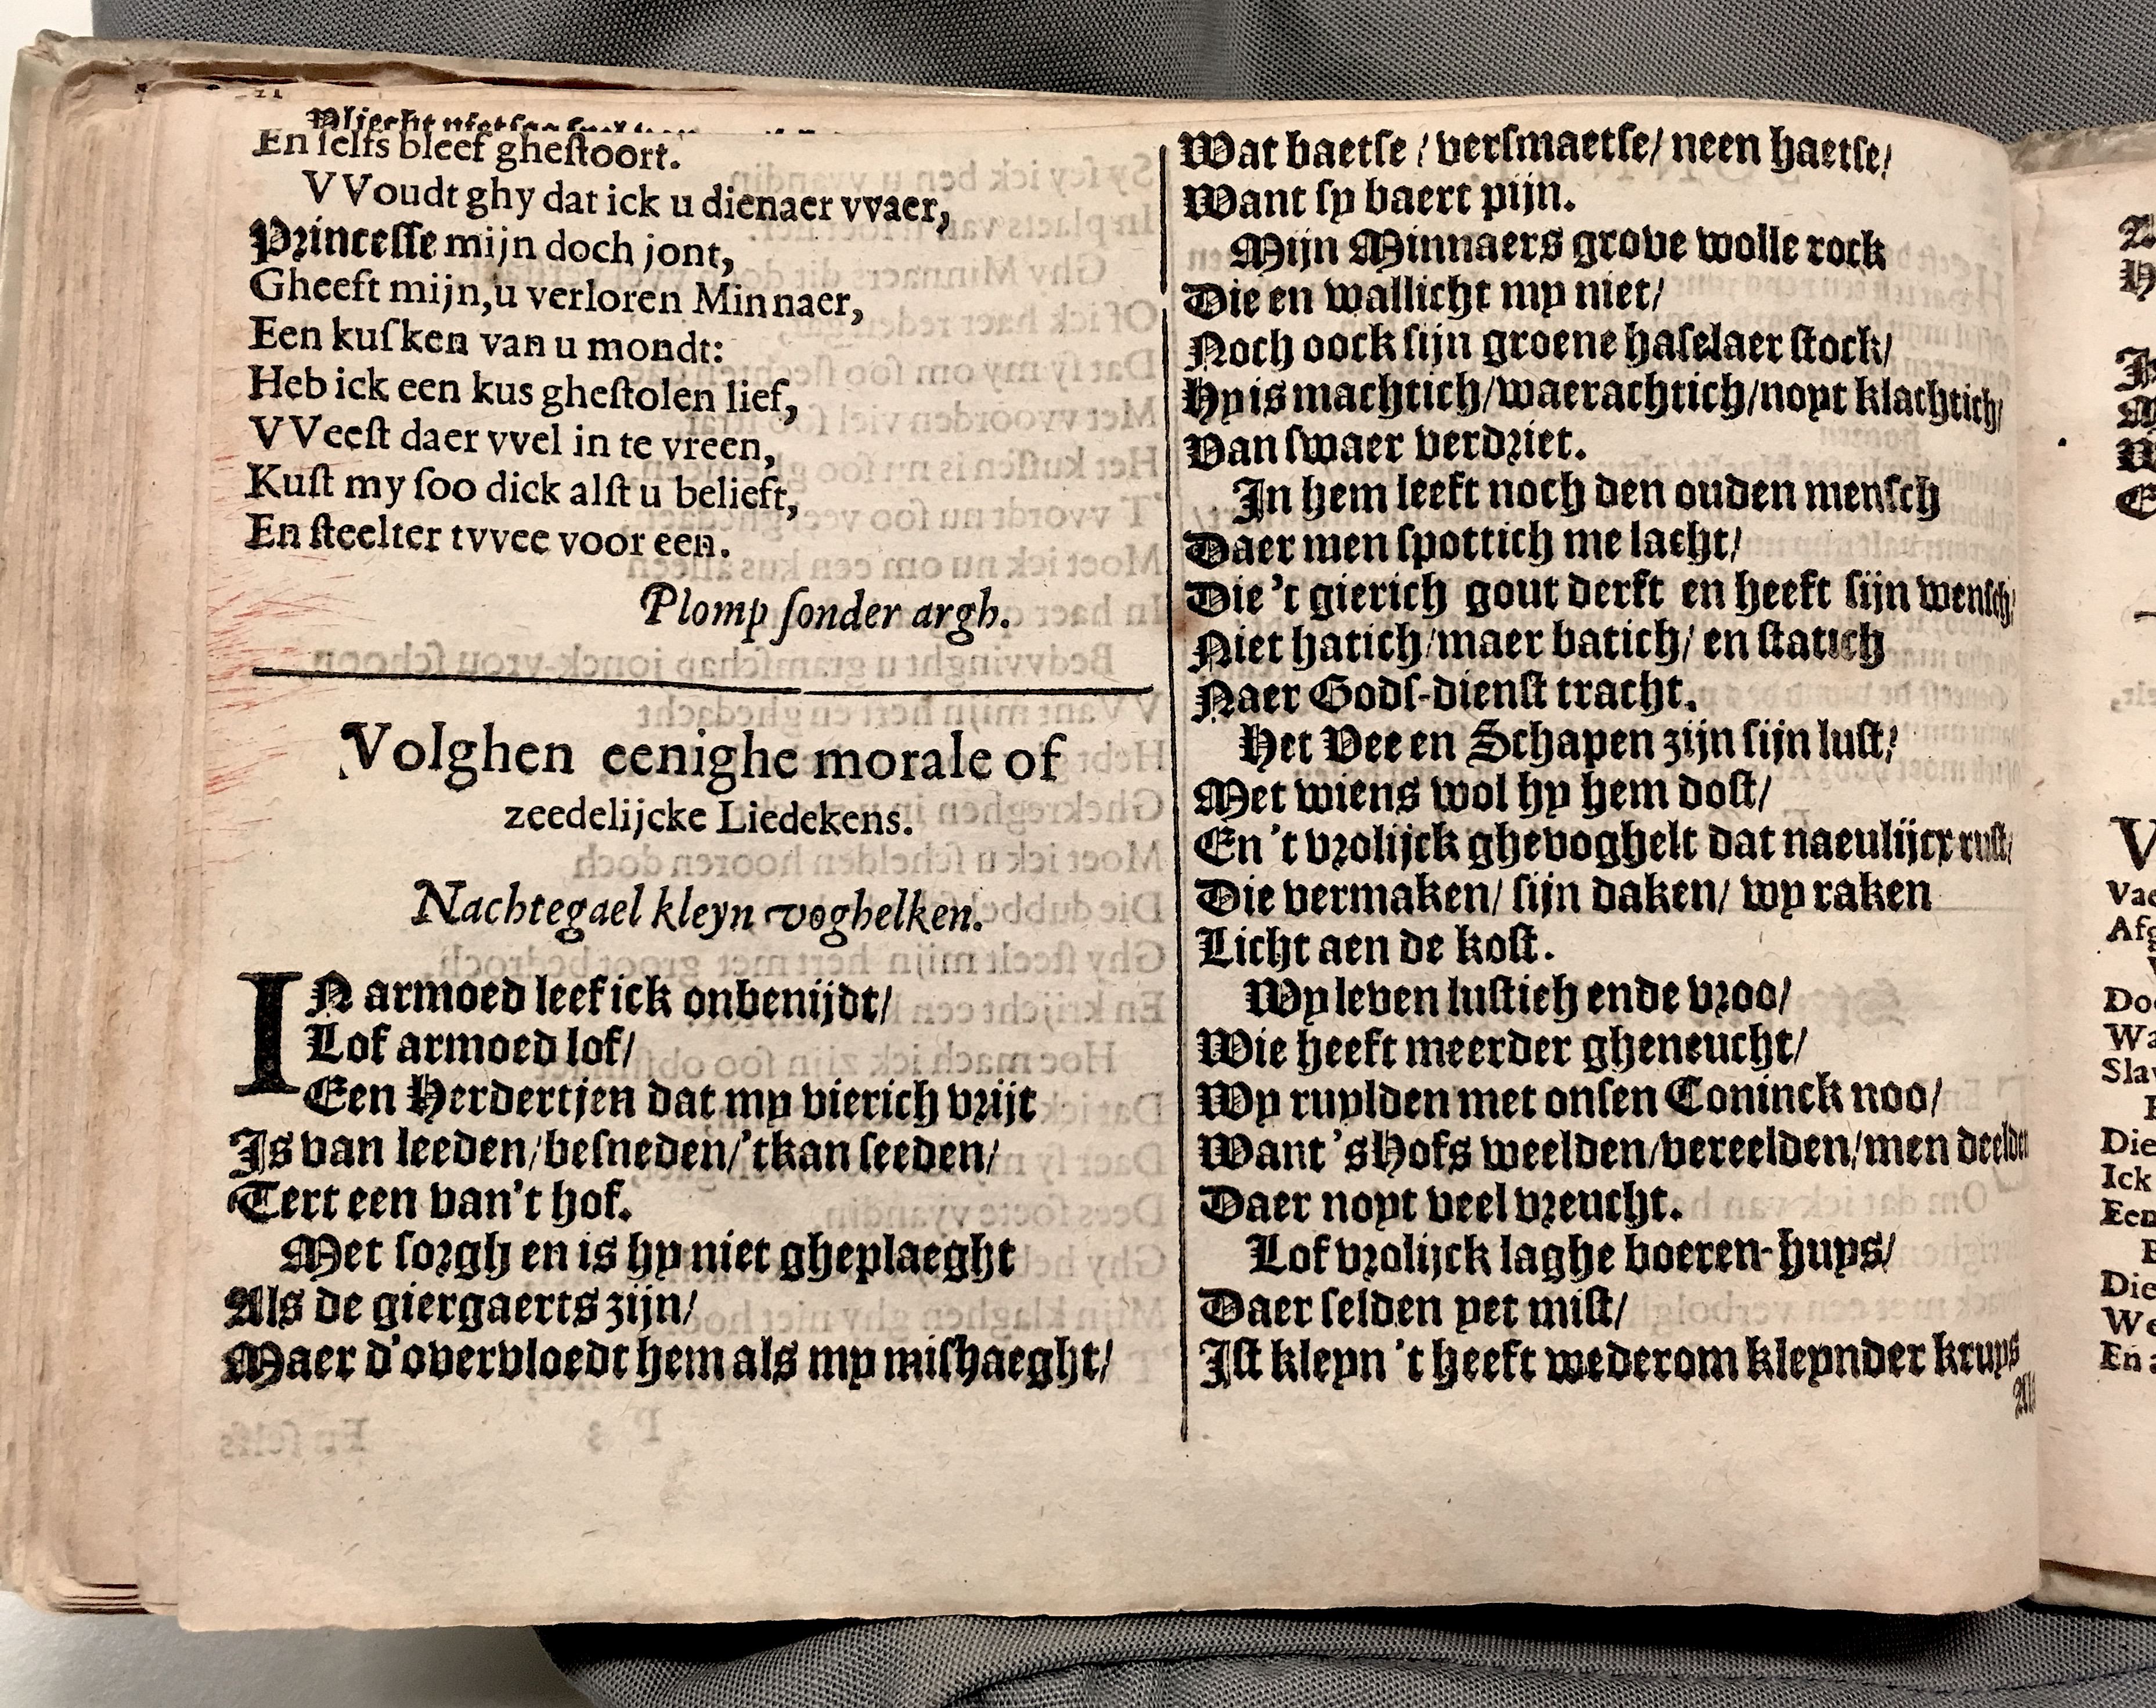 En selfs bleef ghestoort.
VVoudt ghy dat ick u dienaer vvaer,
Princesse mijn doch jont,
Gheeft mijn,u verloren Minnaer,
Een kusken van u mondt:
Heb ick een kus ghestolen lief,
VVeest daer vvel in te vreen,
Kust my soo dick alst u belieft,
En steelter tvvee voor een.
Plomp sonder argh.
Volghen eenighe morale of
zeedelijcke Liedekens.
Nachtegael kleyn voghelken.
IN armoed leef ick onbenijdt/
Lof armoed lof/
Een Herdertjen dat my vierich vrijt
Is van leeden/besneden/'tkan seeden/
Tert een van't hof.
Met sorgh en is hy niet gheplaeght
Als de giergaerts zijn/
Maer d'overvloedt hem als my mishaeght/
Wat baetse/versmaetse/neen haetse/
Want sy baert pijn.
Mijn Minnaers grove wolle rock
Die en wallicht my niet/
Noch oock sijn groene haselaer stock/
Hy is machtich/waerachtich/noyt klachtich/
Van swaer verdriet.
In hem leeft noch den ouden mensch
Daer men spottich me lacht/
Die 't gierich gout derft en heeft sijn wensch/
Niet hatich/maer batich/en statich
Naer Gods-dienst tracht.
Het Vee en Schapen zijn sijn lust/
Met wiens wol hy hem dost/
En 't vrolijck ghevoghelt dat naeulijcx rust/
Die vermaken/sijn daken/wy raken
Licht aen de kost.
Wy leven lustich ende vroo/
Wie heeft meerder gheneucht/
Wy ruylden met onsen Coninck noo/
Want 's Hofs weelden/vereelden/men deelden
Daer noyt veel vreucht.
Lof vrolijck laghe boeren-huys/
Daer selden yet mist/
Ist kleyn 't heeft wederom kleynder kruys